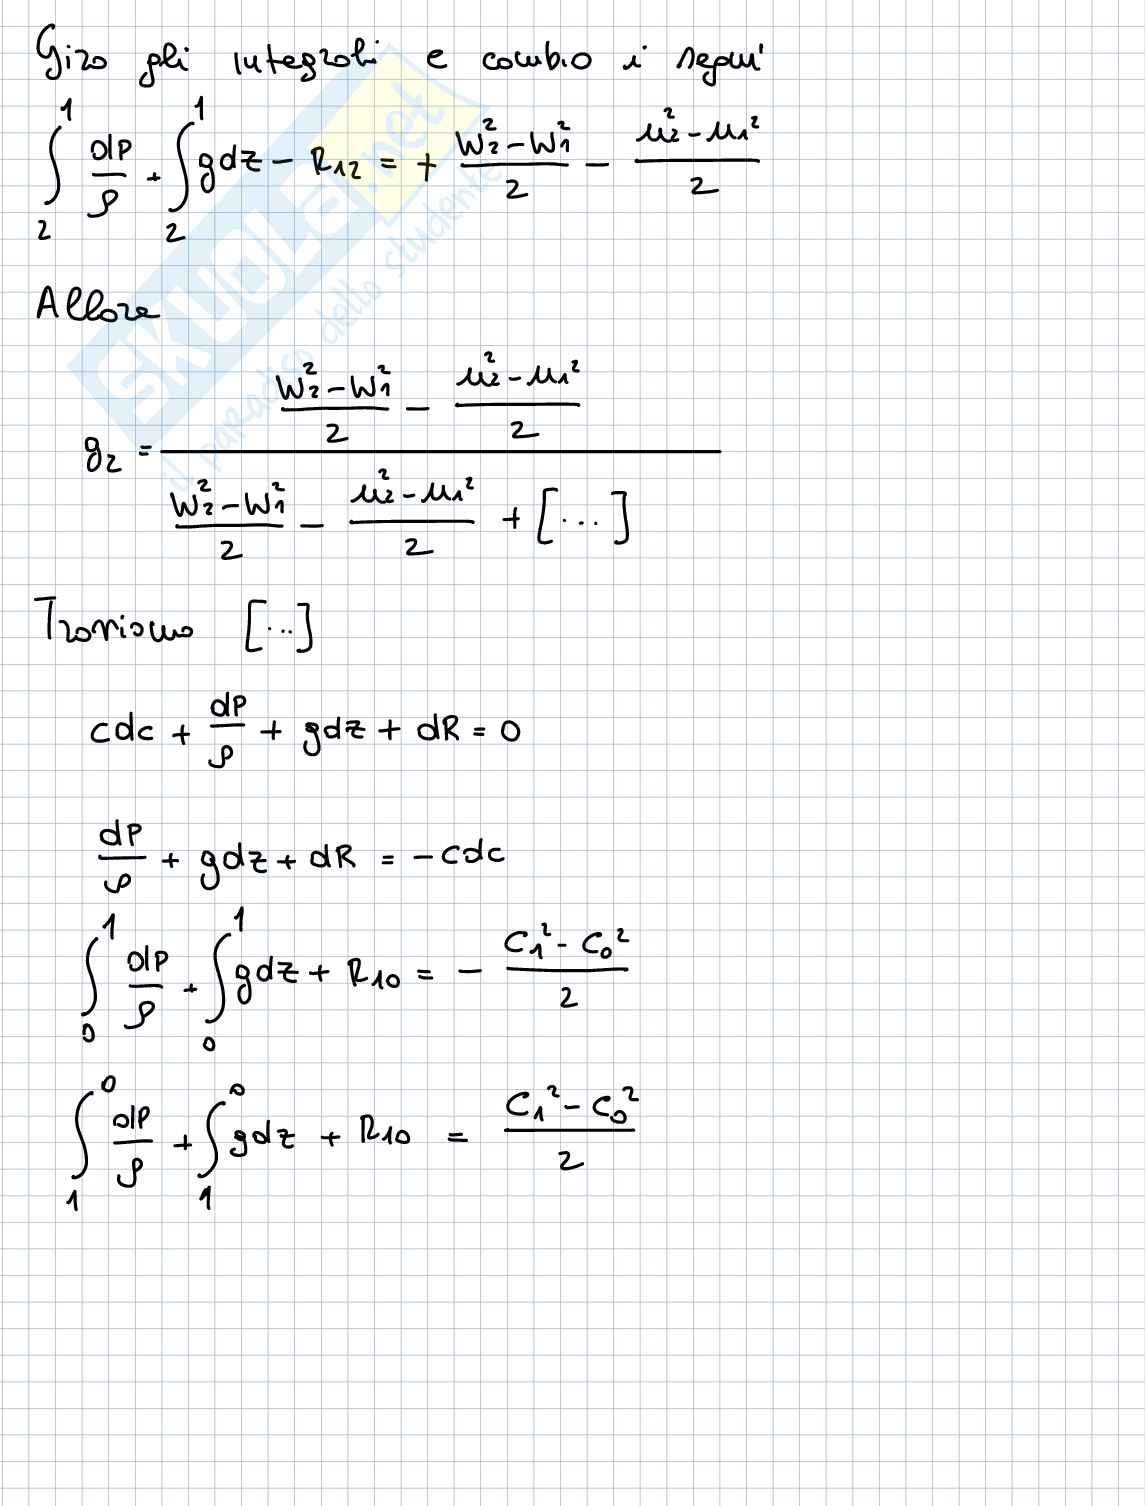 Giro gli integrali e cambio i segni
∫₂¹ dP/ρ + ∫₂¹ gdz − R₁₂ = + (W₂² − W₁²)/2 − (u₂² − u₁²)/2
Allora
g₂ = ((W₂² − W₁²)/2 − (u₂² − u₁²)/2) / ((W₂² − W₁²)/2 − (u₂² − u₁²)/2 + [...])
Troviamo [...]
cdc + dP/ρ + gdz + dR = 0
dP/ρ + gdz + dR = −cdc
∫₀¹ dP/ρ + ∫₀¹ gdz + R₁₀ = − (C₁² − C₀²)/2
∫₁⁰ dP/ρ + ∫₁⁰ gdz + R₁₀ = (C₁² − C₀²)/2
SKUOLA.net
il paradiso dello studente